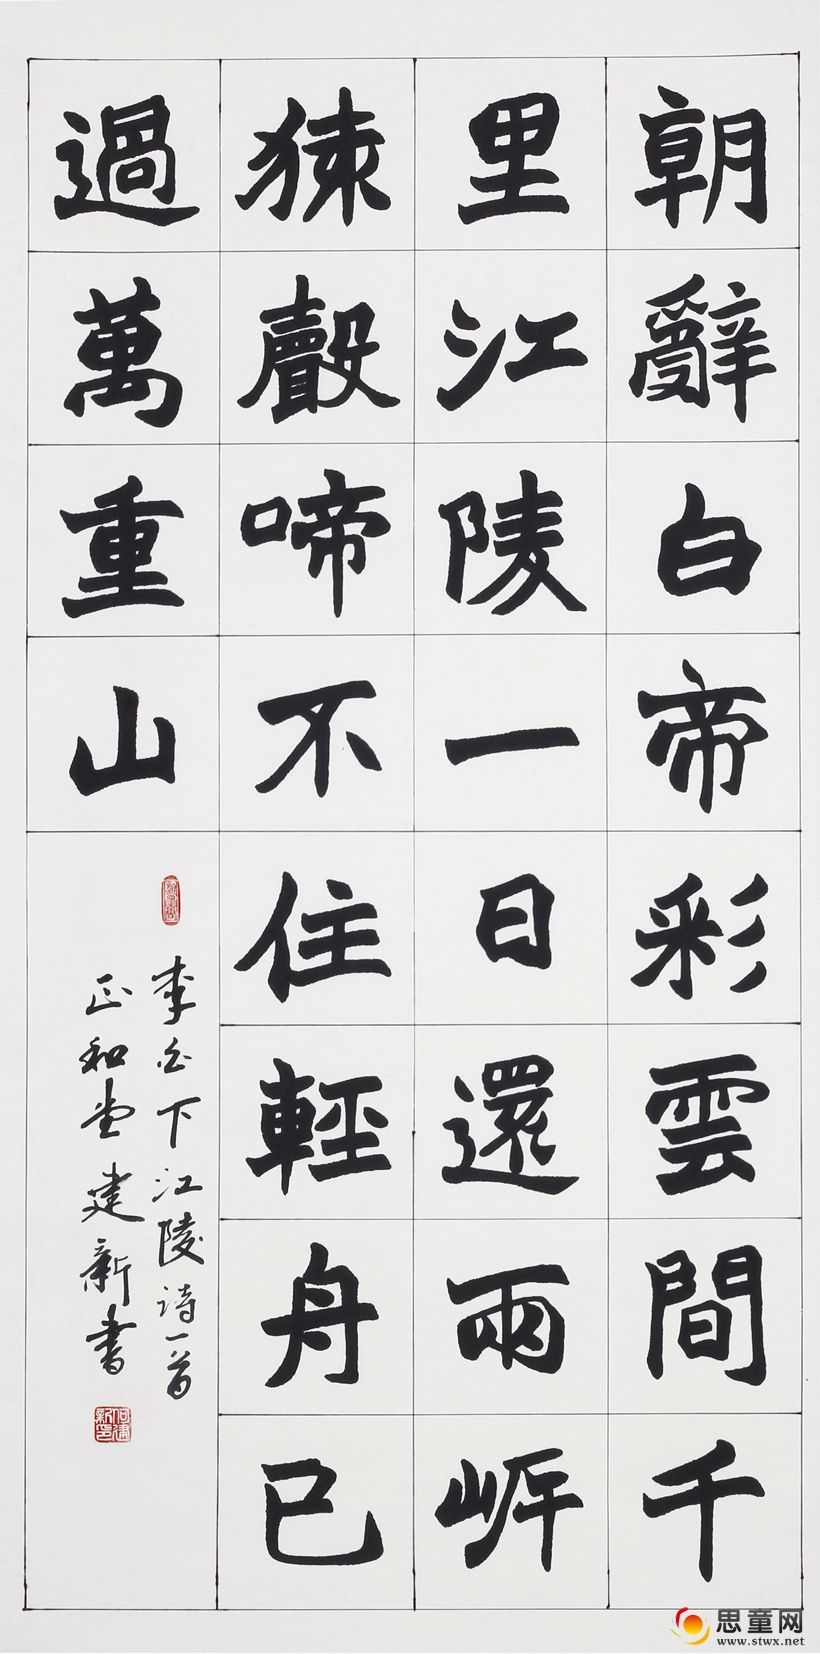 朝辭白帝彩雲間千
里江陵一日還兩岸
猿聲啼不住輕舟已
過萬重山
李白下江陵诗一首
正和堂建新書
何建新印
思童网
www.stwx.net